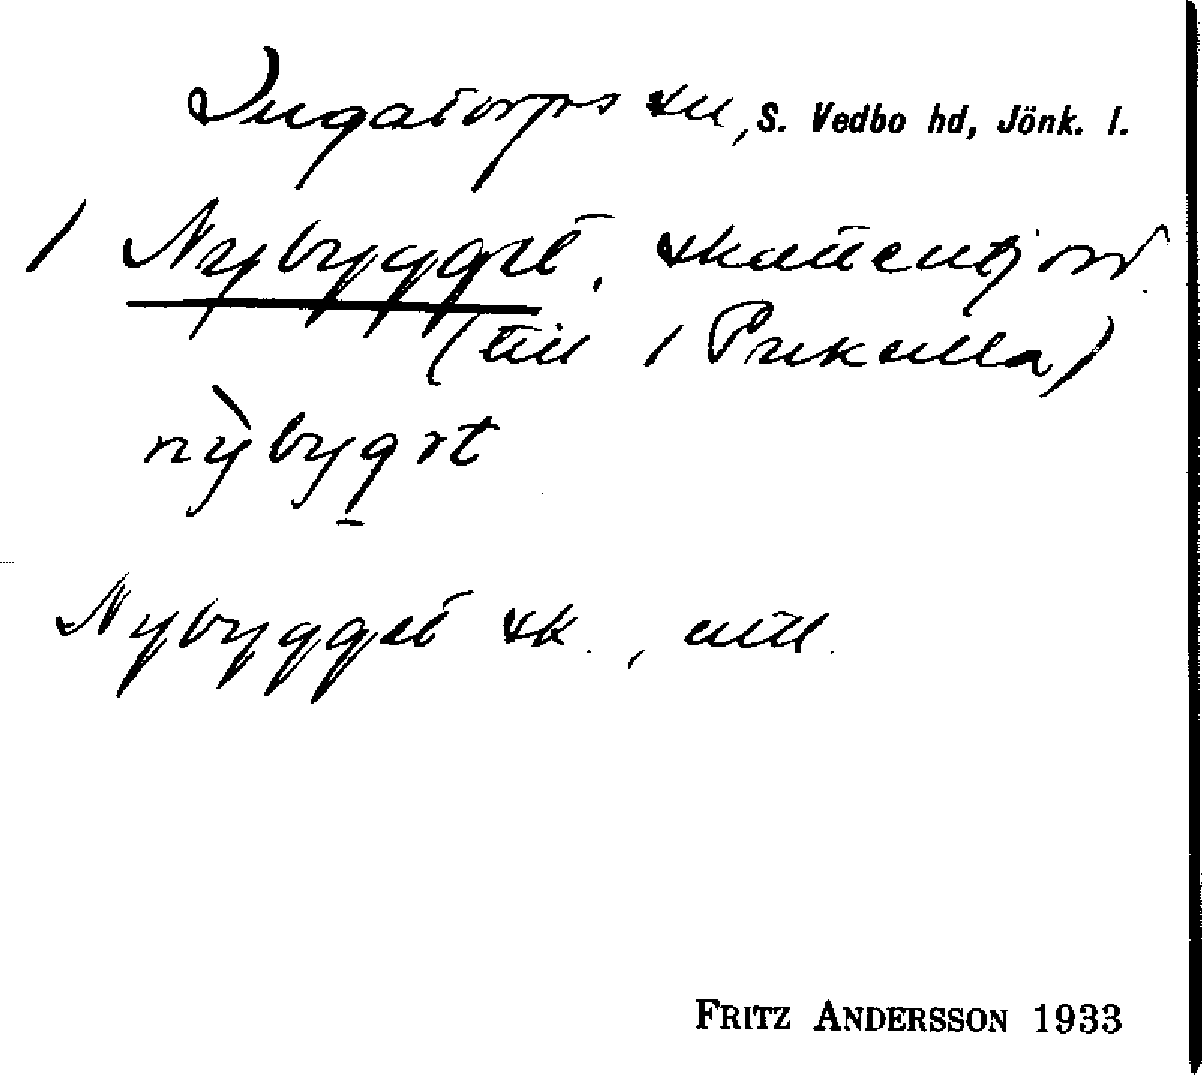 Ingatorps sn, S. Vedbo hd, Jönk. l.
1 Nybygget, skattentjord
(till 1 Pukulla)
nỳbygət
Nybygget sk.
FRITZ ANDERSSON 1933